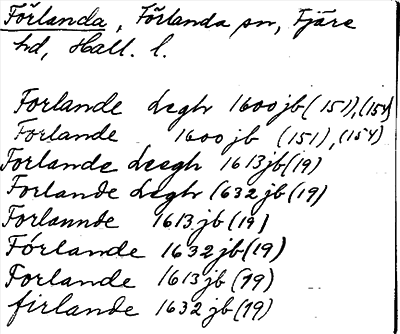 Förlanda, Förlanda sn, Fjäre
hd, Hall. l.
Forlande Leegh 1600 jb (151), (154)
Forlande 1600 jb (151), (154)
Forlande Leegh 1613 jb (19)
Forlande Legh 1632 jb (19)
Forlannde 1613 jb (19)
Förlande 1632 jb (19)
Forlande 1613 jb (19)
firlande 1632 jb (19)